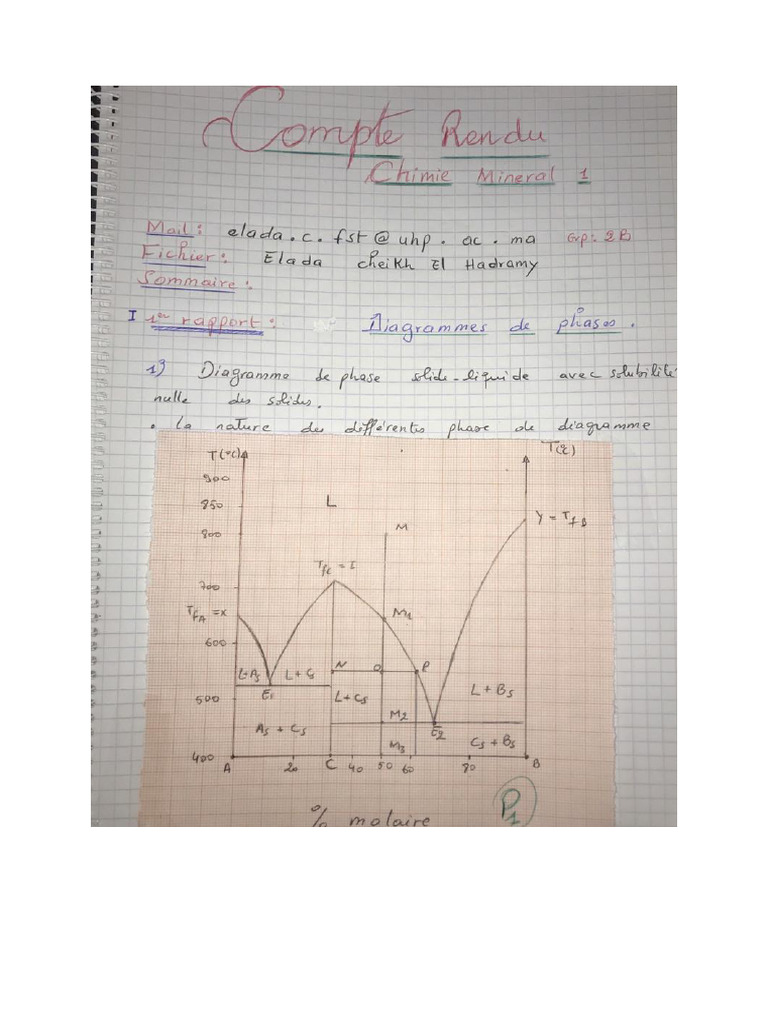 Compte Rendu
Chimie Mineral 1
Mail: elada.c.fst@uhp.ac.ma Grp: 2B
Fichier: Elada cheikh El Hadramy
Sommaire:
I 1er rapport: Diagrammes de phases.
1) Diagramme de phase solide-liquide avec solubilité
nulle des solides.
• la nature des différentes phase de diagramme
T(°C) T(°C)
900
850 L
800 M Y = TfB
TfC = I
700
TfA = x M1
600
L+As L+Cs N Q P
E1 L+Cs L+Bs
500
M2 E2
As + Cs M3 Cs + Bs
400
A 20 C 40 50 60 80 B
% molaire
P1